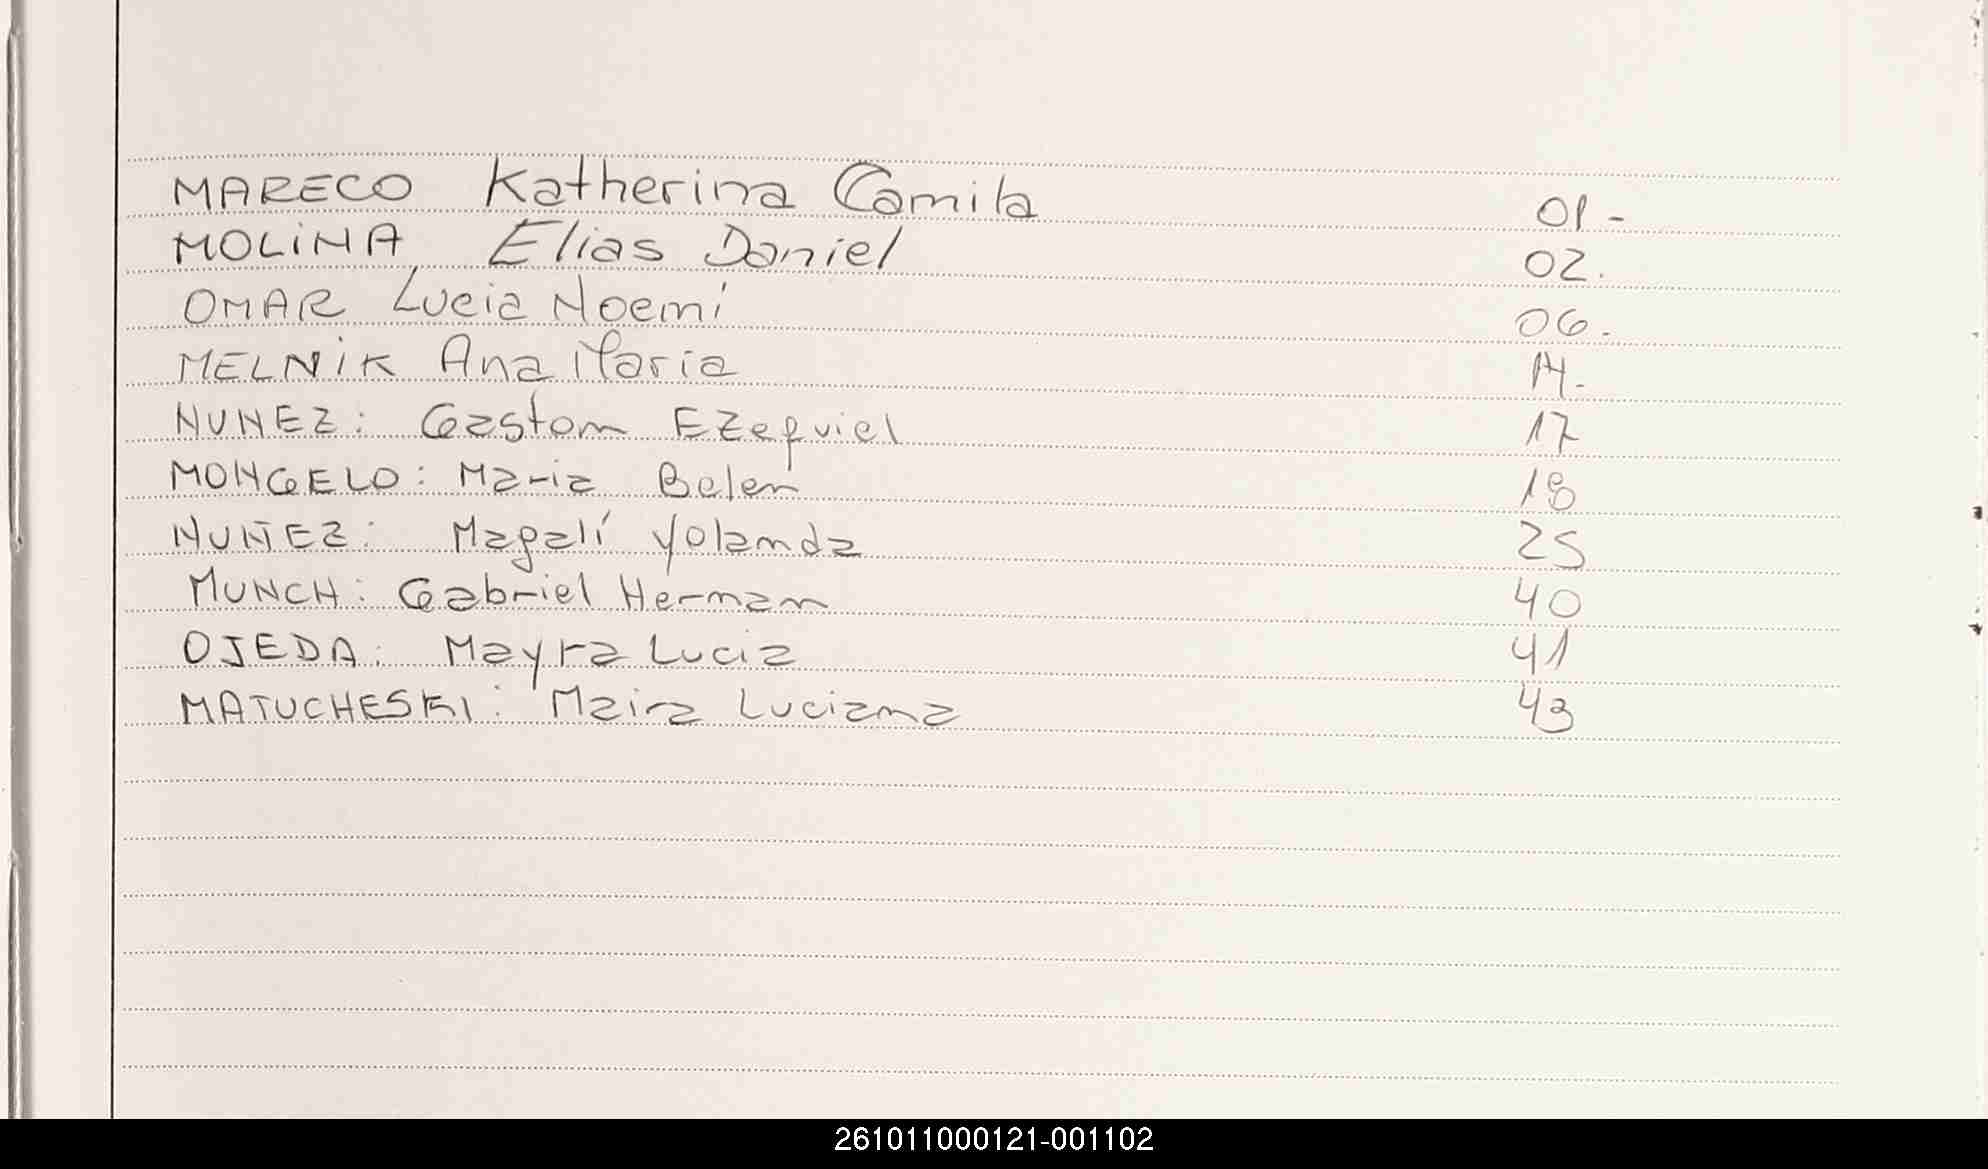 MARECO Katherina Camila 01-
MOLINA Elias Daniel 02.
OMAR Lucia Noemi 06.
MELNIK Ana Maria 14-
NUNEZ: Gaston Ezequiel 17
MONGELO: Maria Belen 18
NUÑEZ: Magalí Yolanda 25
MUNCH: Gabriel Hernan 40
OJEDA: Mayra Lucia 41
MATUCHESKI: Maira Luciana 43
261011000121-001102